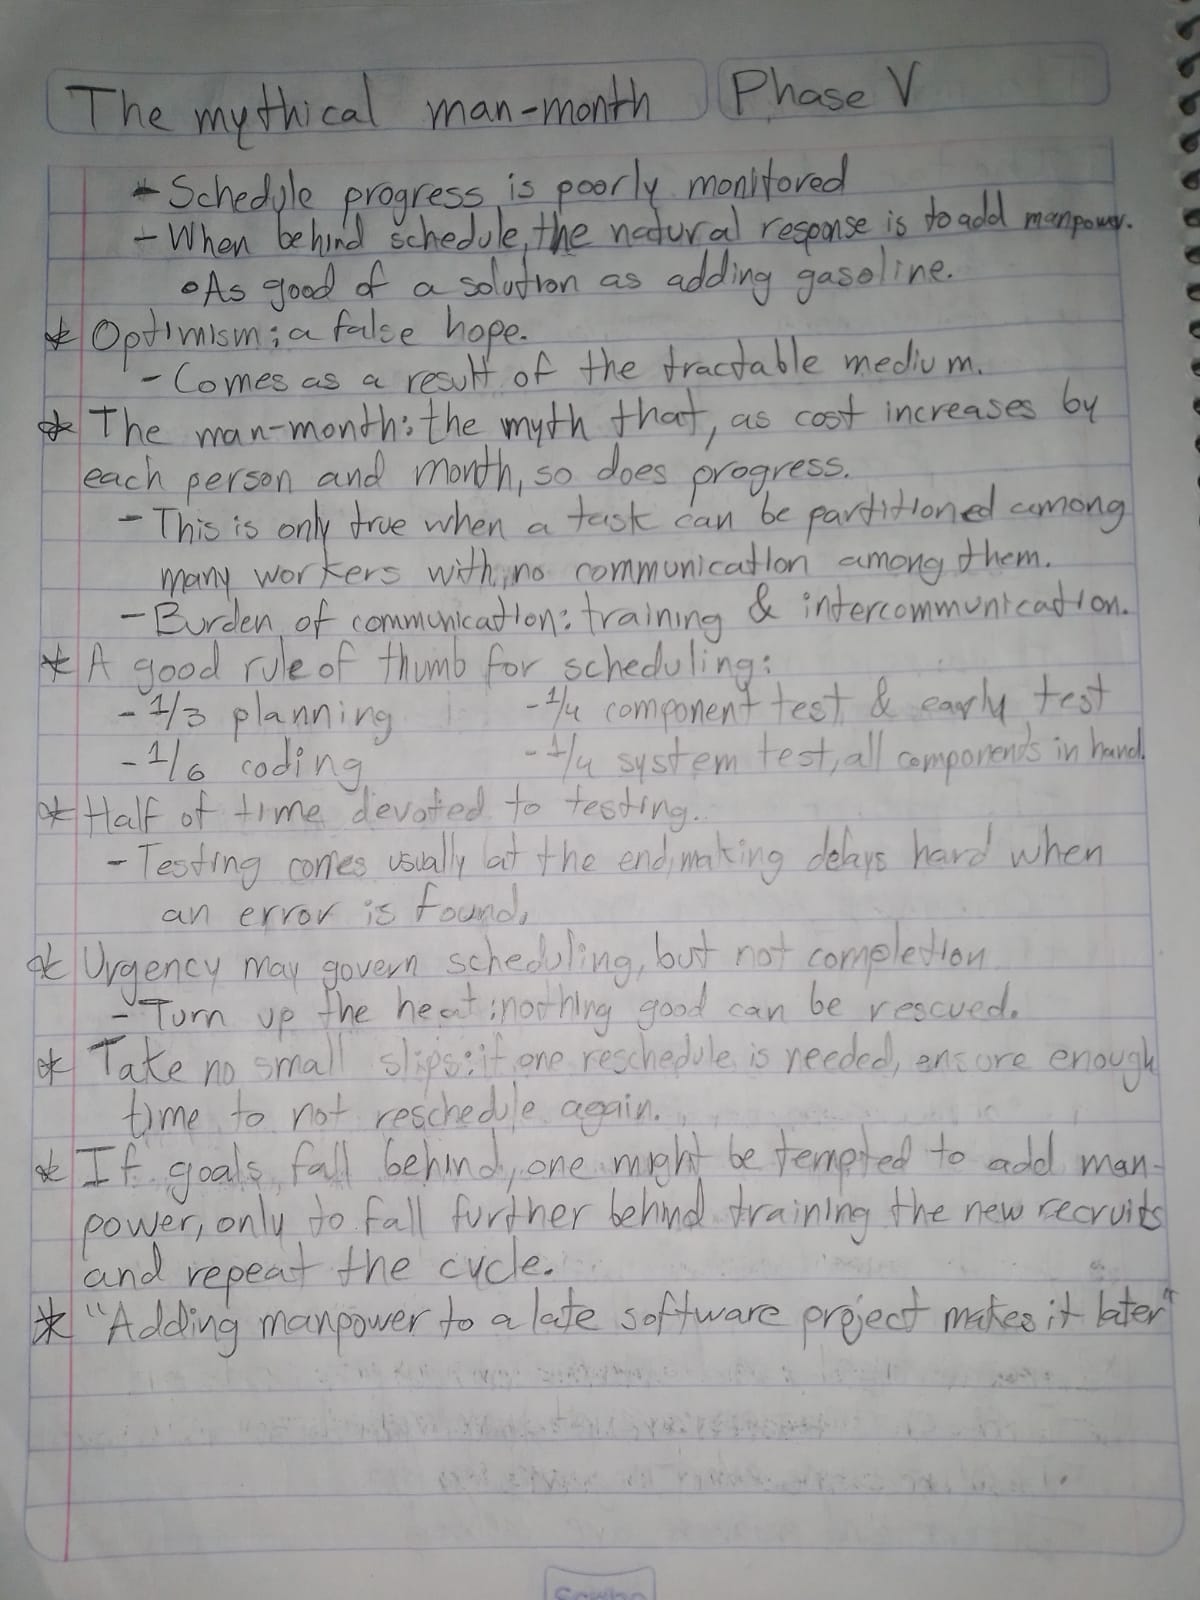 The mythical man-month Phase V
- Schedule progress is poorly monitored
- When behind schedule, the natural response is to add manpower.
• As good of a solution as adding gasoline.
* Optimism: a false hope.
- Comes as a result of the tractable medium.
* The man-month: the myth that, as cost increases by
each person and month, so does progress.
- This is only true when a task can be partitioned among
many workers with no communication among them.
- Burden of communication: training & intercommunication.
* A good rule of thumb for scheduling:
- 1/3 planning - 1/4 component test & early test
- 1/6 coding - 1/4 system test, all components in hand.
* Half of time devoted to testing.
- Testing comes usually at the end, making delays hard when
an error is found.
* Urgency may govern scheduling, but not completion
- Turn up the heat: nothing good can be rescued.
* Take no small slips: if one reschedule is needed, ensure enough
time to not reschedule again.
* If goals fall behind, one might be tempted to add man-
power, only to fall further behind training the new recruits
and repeat the cycle.
* "Adding manpower to a late software project makes it later"
Scribe